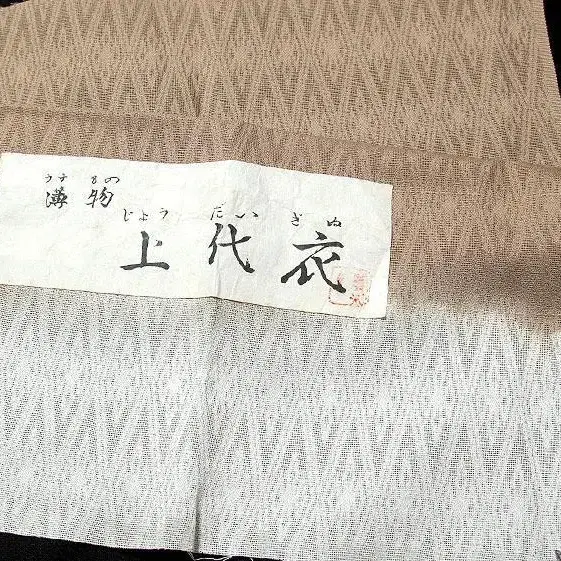 うすもの
薄物
じょうだいぎぬ
上代衣